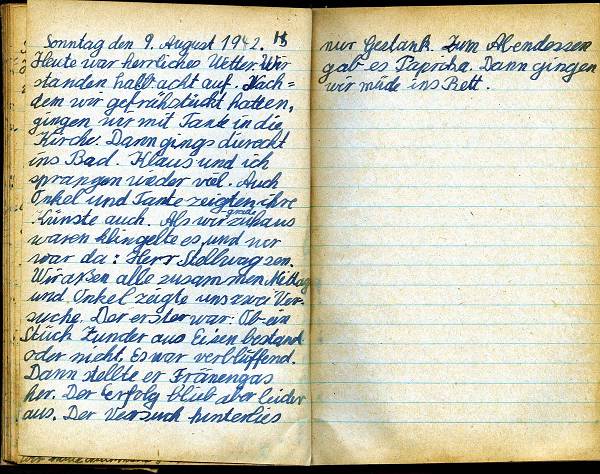 Sonntag den 9. August 1942. 18
Heute war herrliches Wetter. Wir
standen halb acht auf. Nach=
dem wir gefrühstückt hatten,
gingen wir mit Tante in die
Kirche. Dann gings direckt
ins Bad. Klaus und ich
sprangen wieder viel. Auch
Onkel und Tante zeigten ihre
Künste auch. Als wir grade zuhaus
waren klingelte es, und wer
war da: Herr Stellwag sen.
Wir aßen alle zusammen Mittag
und Onkel zeigte uns zwei Ver-
suche. Der erste war: Ob ein
Stück Zunder aus Eisen bestand
oder nicht. Es war verblüffend.
Dann stellte er Tränengas
her. Der Erfolg blieb aber leider
aus. Der Versuch hinterlies
nur Gestank. Zum Abendessen
gab es Papricka. Dann gingen
wir müde ins Bett.